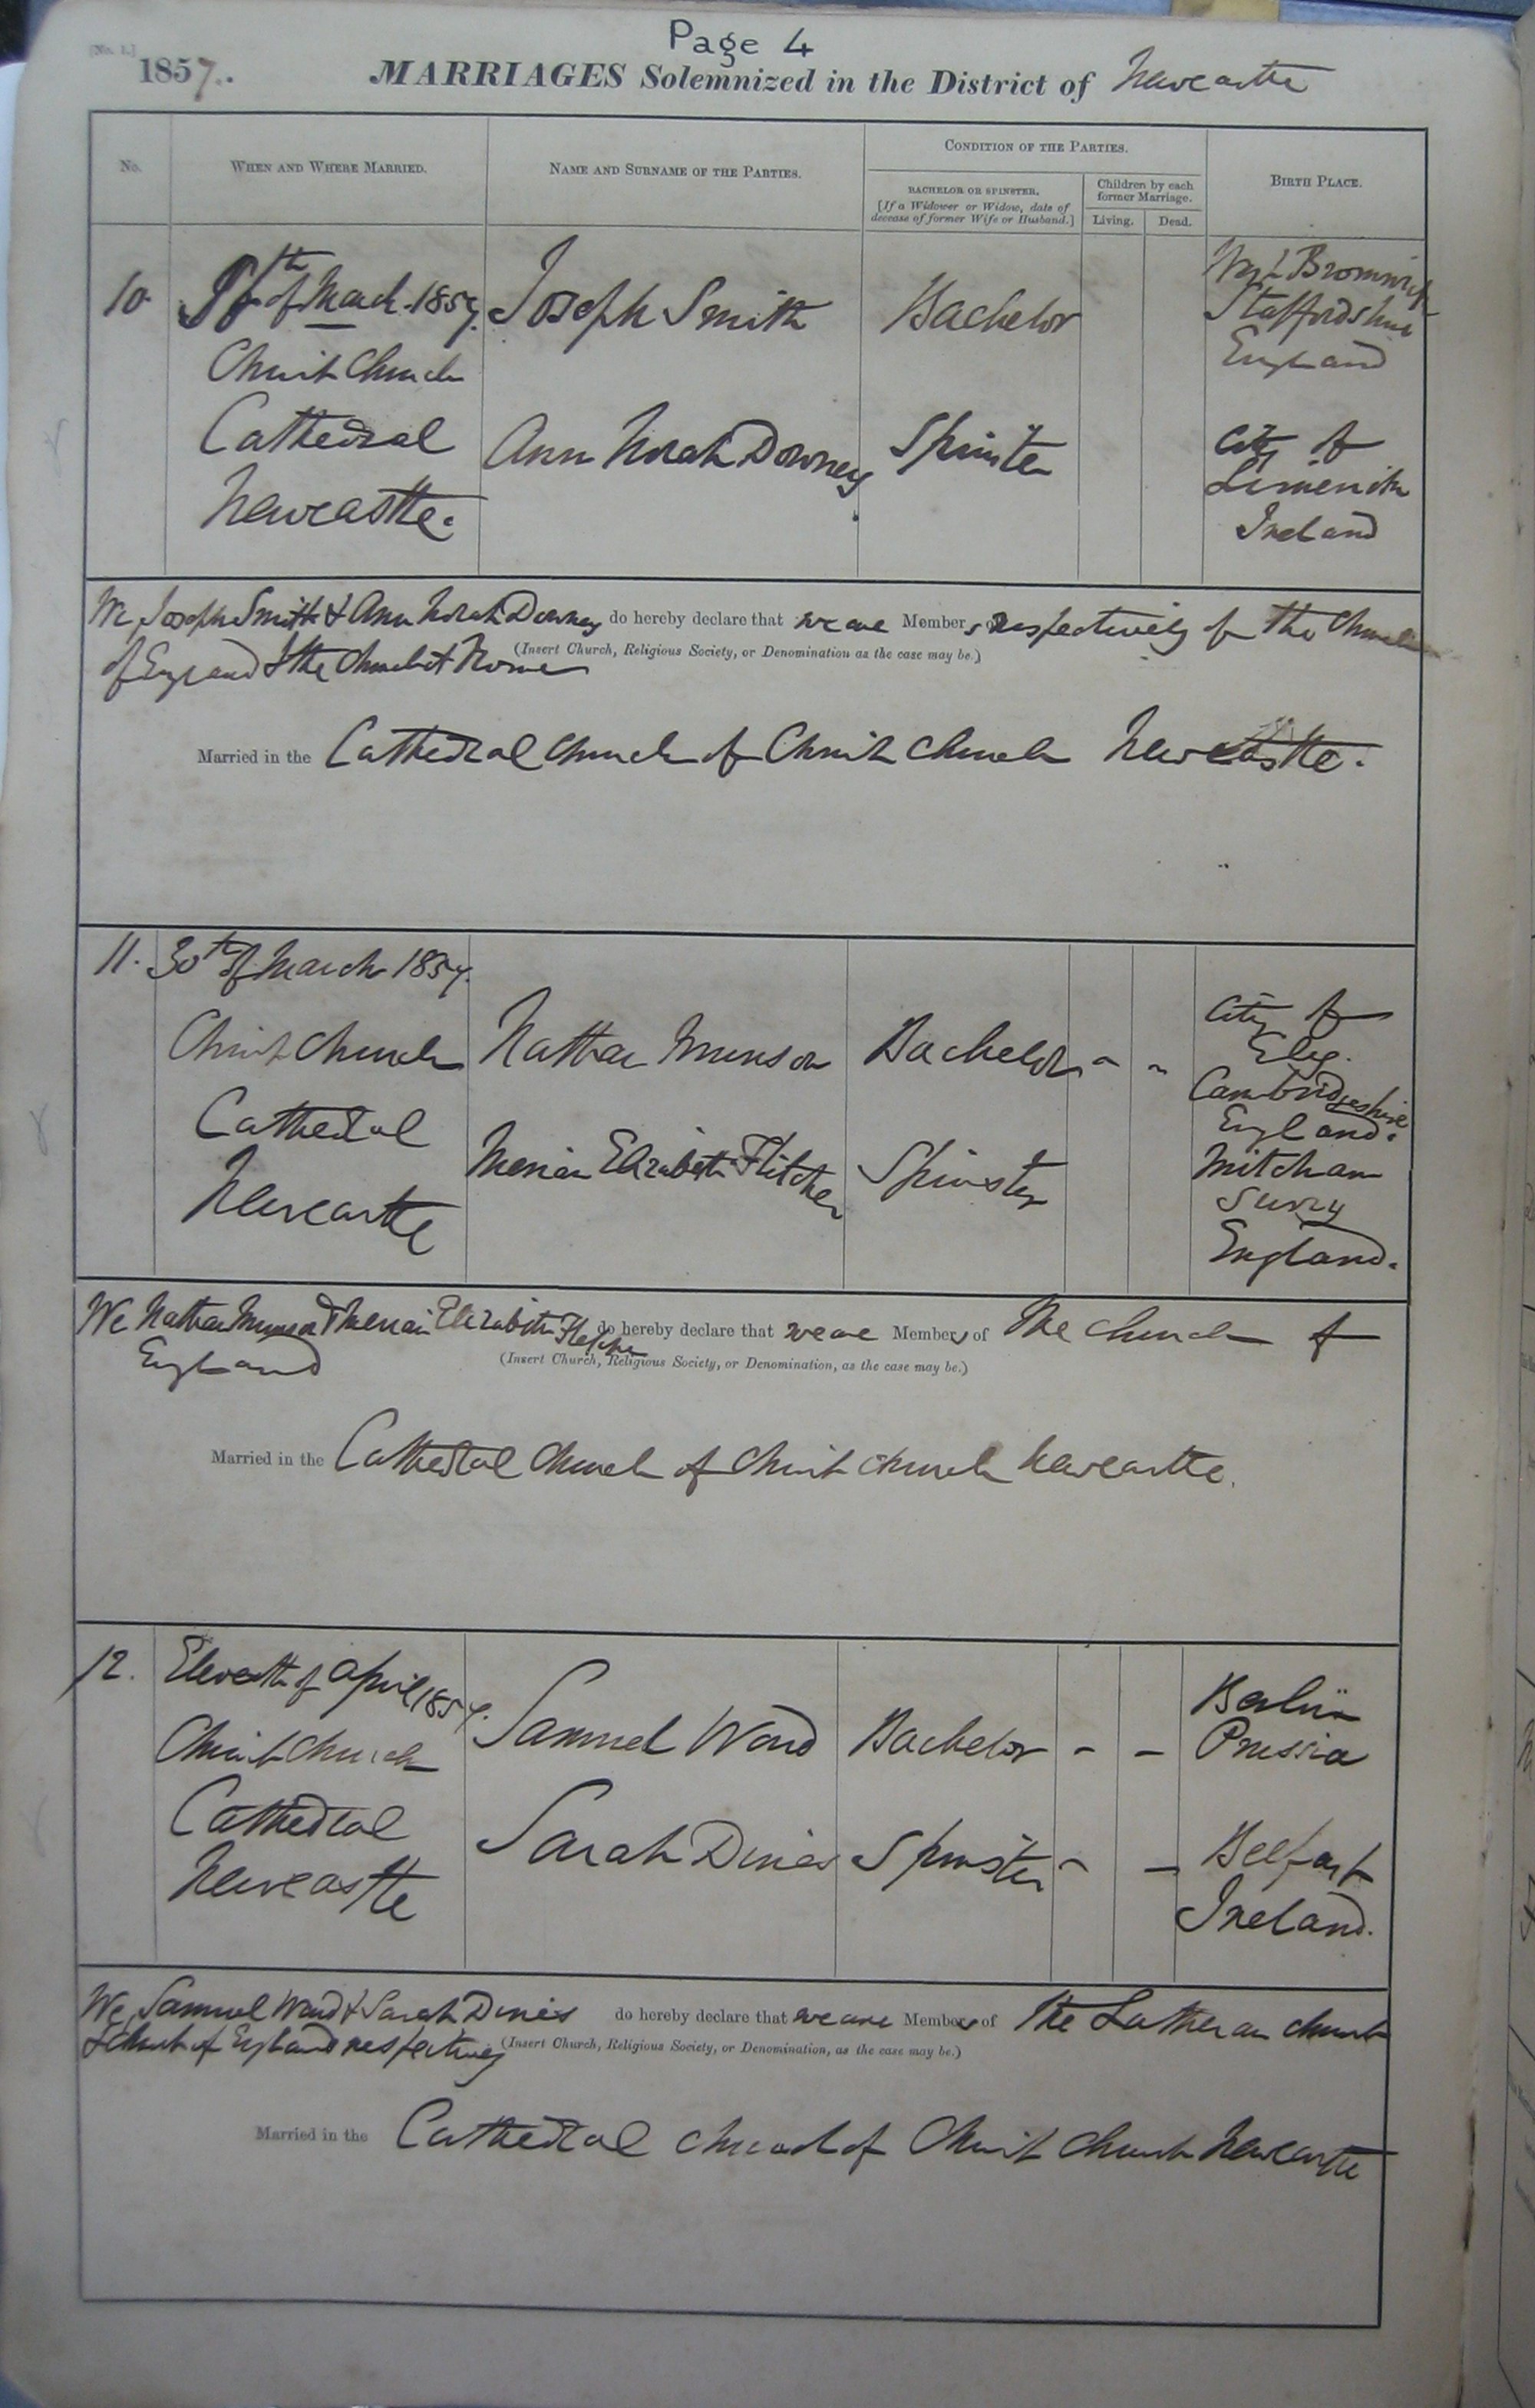 Page 4
[No. 1.]
1857. MARRIAGES Solemnized in the District of Newcastle
No. WHEN AND WHERE MARRIED. NAME AND SURNAME OF THE PARTIES. CONDITION OF THE PARTIES. BIRTH PLACE.
BACHELOR OR SPINSTER. Children by each
[If a Widower or Widow, date of former Marriage.
decease of former Wife or Husband.] Living. Dead.
10 of March 1857. Joseph Smith Bachelor West Bromwich
Staffordshire
Christ Church England
Cathedral Ann Norah Downey Spinster City of
Newcastle. Limerick
Ireland
We, Joseph Smith & Ann Norah Downey do hereby declare that we are Members respectively of the Church
(Insert Church, Religious Society, or Denomination as the case may be.)
of England & the Church of Rome
Married in the Cathedral Church of Christ Church Newcastle.
11. 30th of March 1857.
Christ Church Nathan Munson Bachelor - - City of
Ely.
Cambridgeshire
Cathedral England.
Newcastle Elizabeth Flitcher Spinster Mitcham
Surry
England.
We Nathan Munson & Elizabeth Fletcher do hereby declare that we are Members of The Church of
England (Insert Church, Religious Society, or Denomination, as the case may be.)
Married in the Cathedral Church of Christ Church Newcastle.
12. Eleventh of April 1857. Samuel Ward Bachelor - - Berlin
Christ Church Prussia
Cathedral Sarah Spinster - - Belfast
Newcastle Ireland.
We, Samuel Ward & Sarah do hereby declare that we are Members of The Lutheran Church
& Church of England respectively (Insert Church, Religious Society, or Denomination, as the case may be.)
Married in the Cathedral Church of Christ Church Newcastle